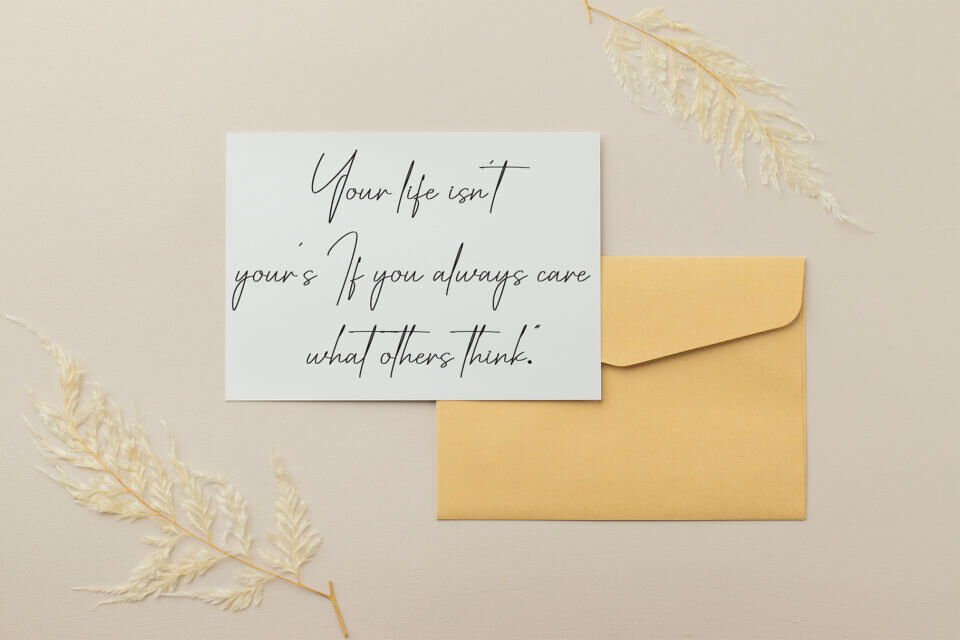 Your life isn't
your's If you always care
what others think."